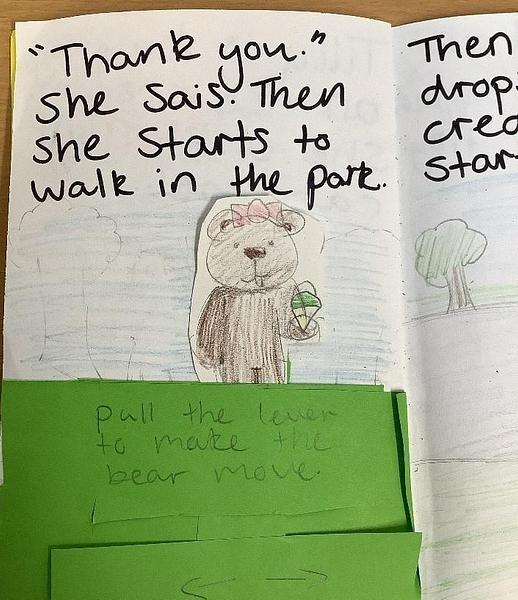 "Thank you."
she sais. Then
she starts to
walk in the park.
pull the lever
to make the
bear move.
Then